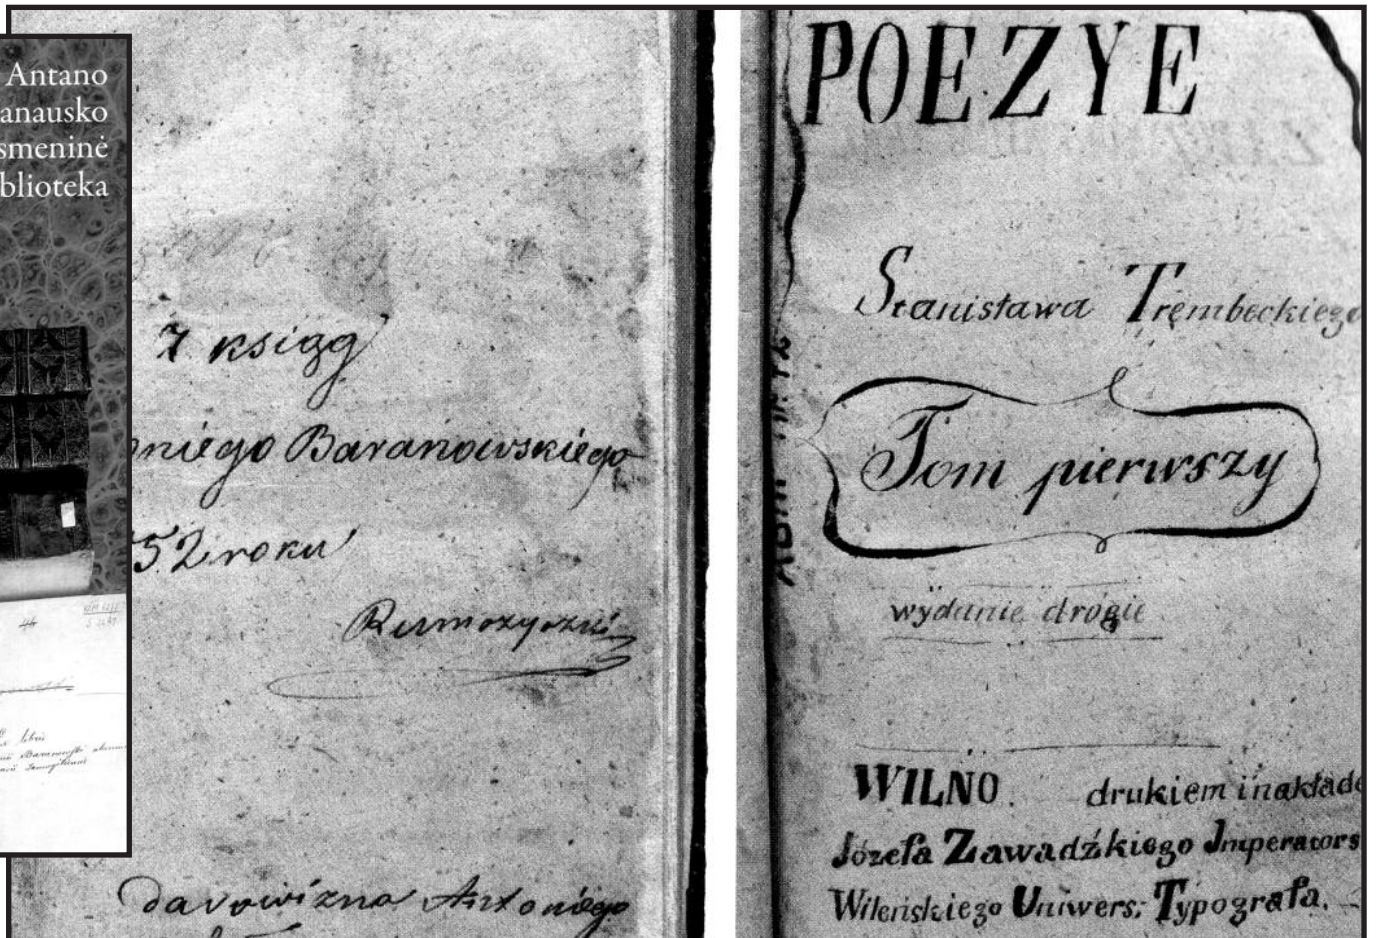 Antano
anausko
smeninė
blioteka
z ksiąg
oniego Baranowskiego
52 roku
Rumszyszki
darowizna Antoniégo
POEZYE
Stanisława Trembeckiego
Tom pierwszy
wydanie drógie
WILNO. drukiem i nakłade
Józefa Zawadźkiego Imperators
Wileńskiego Uniwers: Typografa.